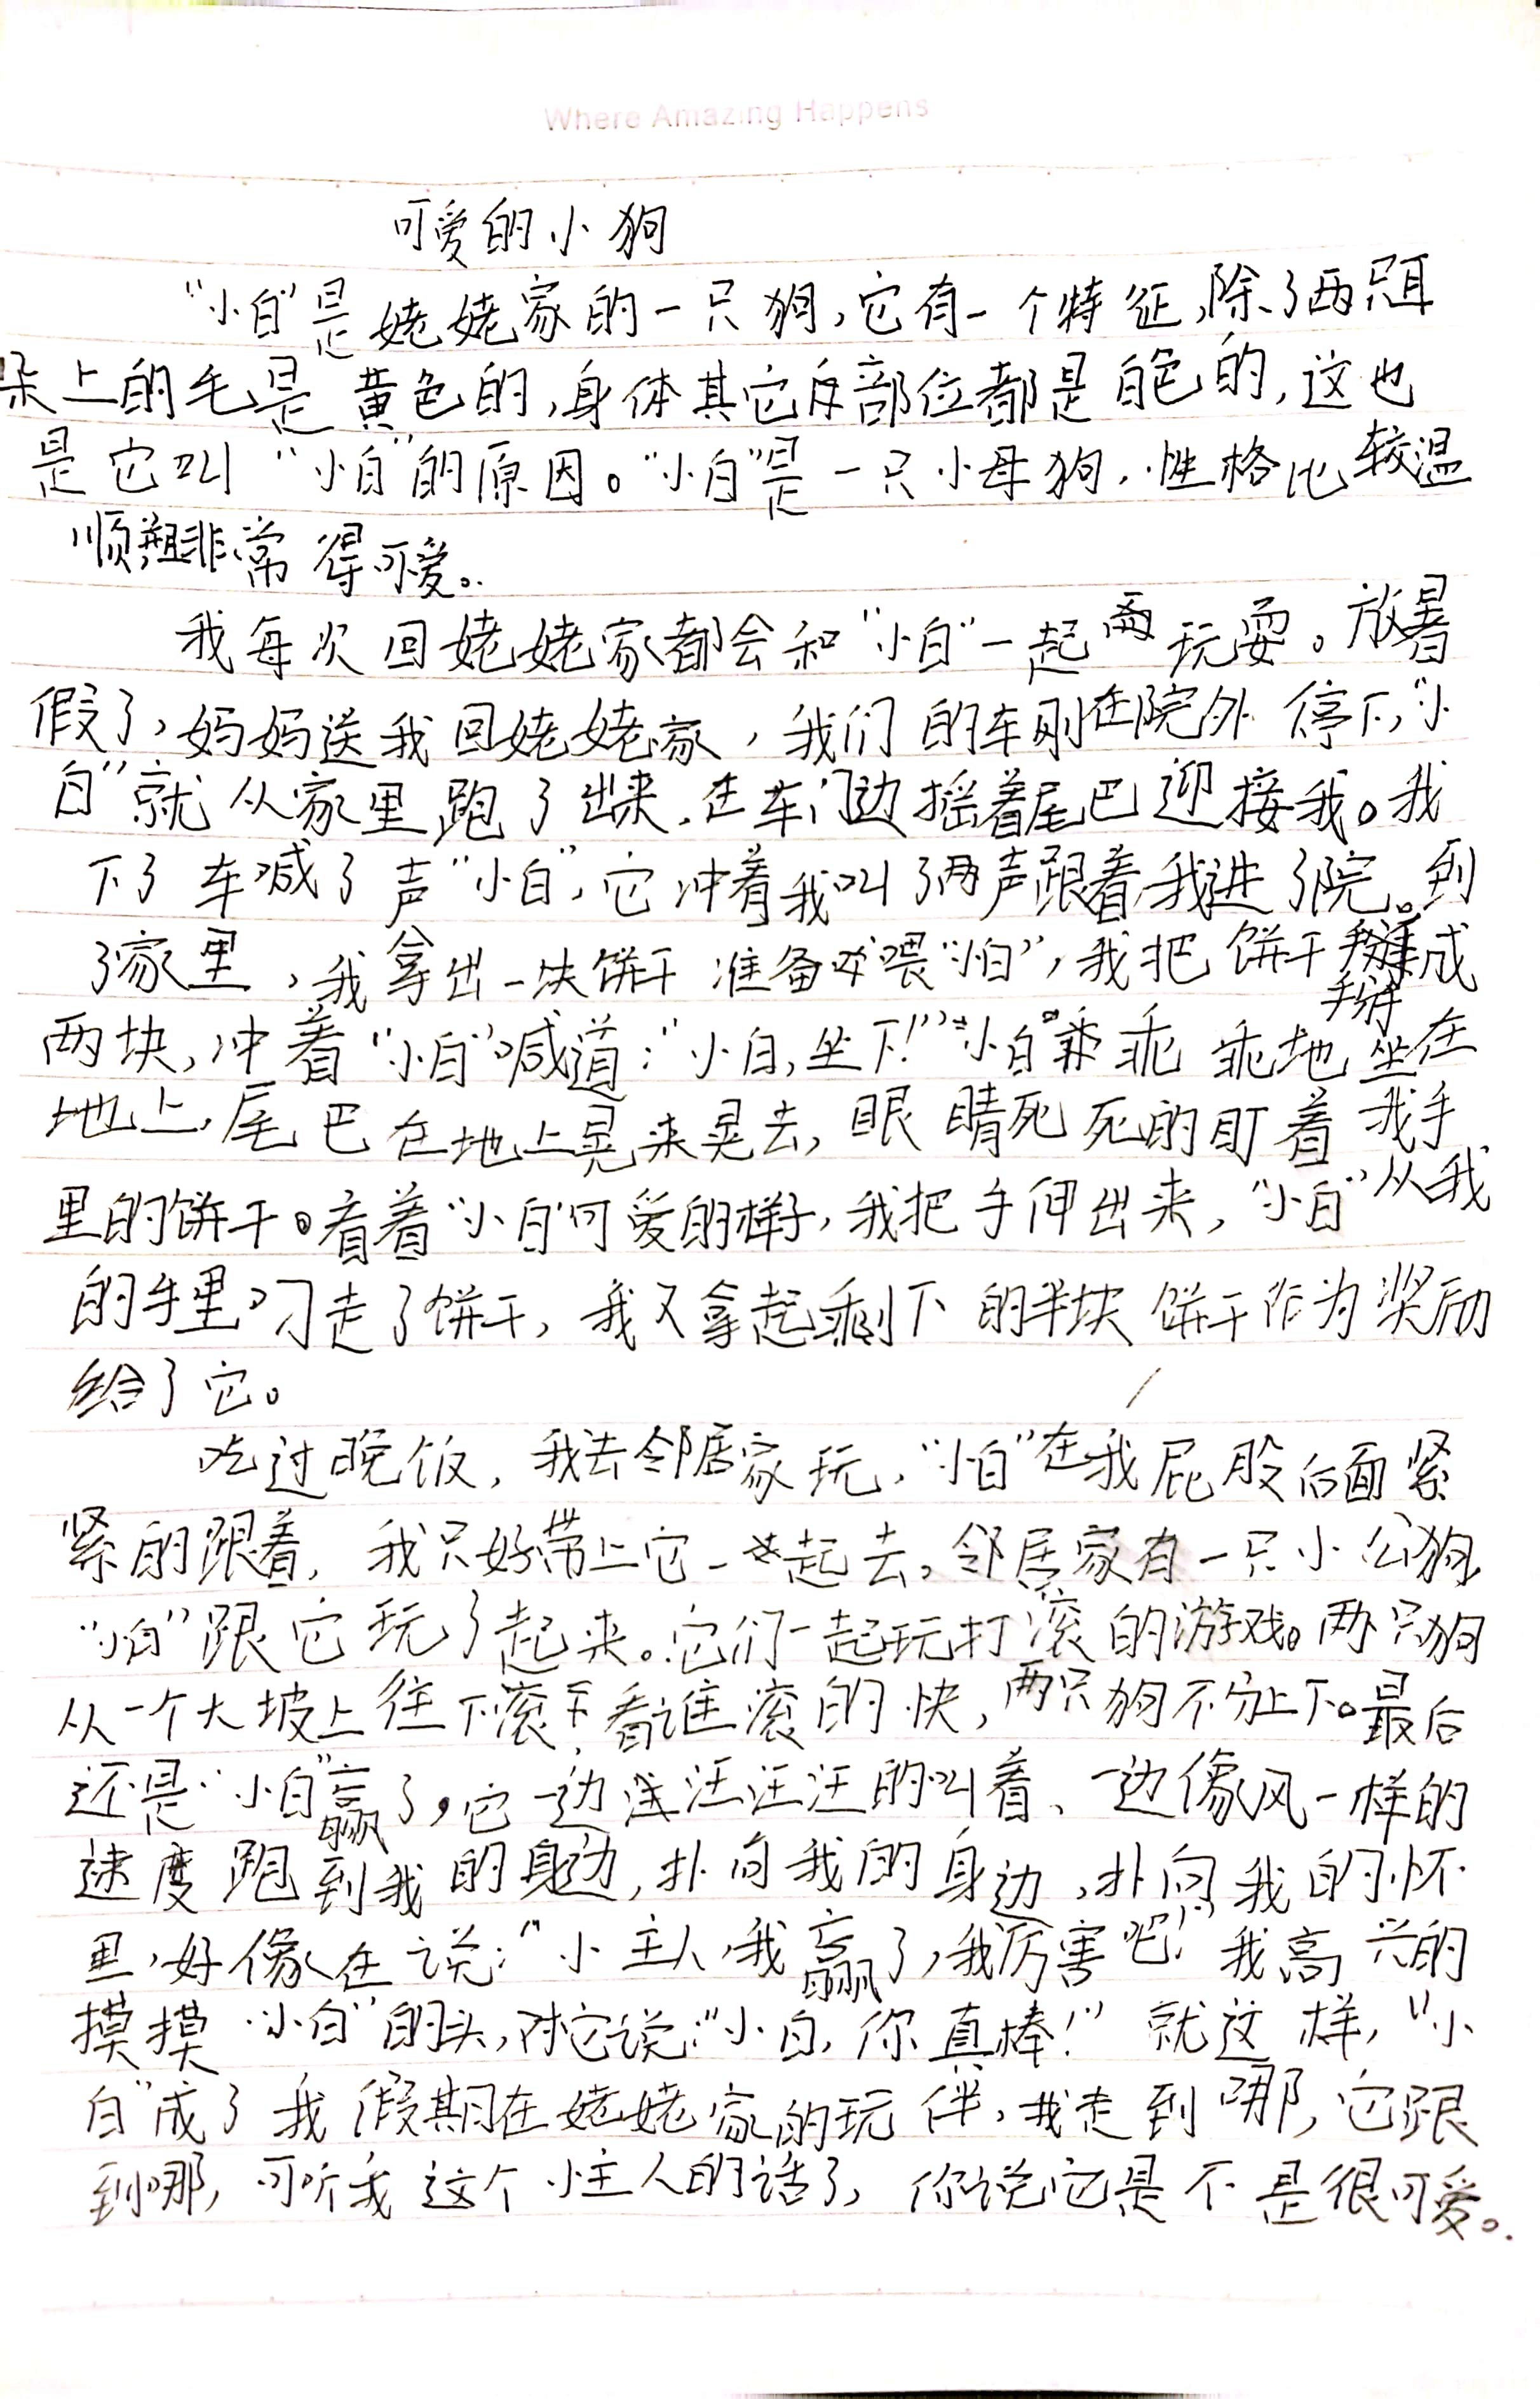 Where Amazing Happens
可爱的小狗
“小白”是姥姥家的一只狗,它有一个特征,除了两只耳
朵上的毛是黄色的,身体其它部位都是白色的,这也
是它叫“小白”的原因。“小白”是一只小母狗,性格比较温
顺非常得可爱。
我每次回姥姥家都会和“小白”一起玩耍。放暑
假了,妈妈送我回姥姥家,我们的车刚在院外停下,“小
白”就从家里跑了出来,在车门边摇着尾巴迎接我。我
下了车喊了声“小白”,它冲着我叫了两声跟着我进了院。到
了家里,我拿出一块饼干准备喂“小白”,我把饼干掰成
两块,冲着“小白”喊道:“小白,坐下!”“小白”乖乖地坐在
地上,尾巴在地上晃来晃去,眼睛死死的盯着我手
里的饼干。看着“小白”可爱的样子,我把手伸出来,“小白”从我
的手里叼走了饼干,我又拿起剩下的半块饼干作为奖励
给了它。
吃过晚饭,我去邻居家玩,“小白”在我屁股后面紧
紧的跟着,我只好带上它一起去。邻居家有一只小公狗,
“小白”跟它玩了起来。它们一起玩打滚的游戏。两只狗
从一个大坡上往下滚,看谁滚的快,两只狗不分上下。最后
还是“小白”赢了,它一边汪汪汪的叫着、一边像风一样的
速度跑到我的身边,扑向我的身边,扑向我的怀
里,好像在说:“小主人,我赢了,我厉害吧!”我高兴的
摸摸“小白”的头,对它说:“小白,你真棒!”就这样,“小
白”成了我假期在姥姥家的玩伴,我走到哪,它跟
到哪,可听我这个小主人的话了,你说它是不是很可爱。